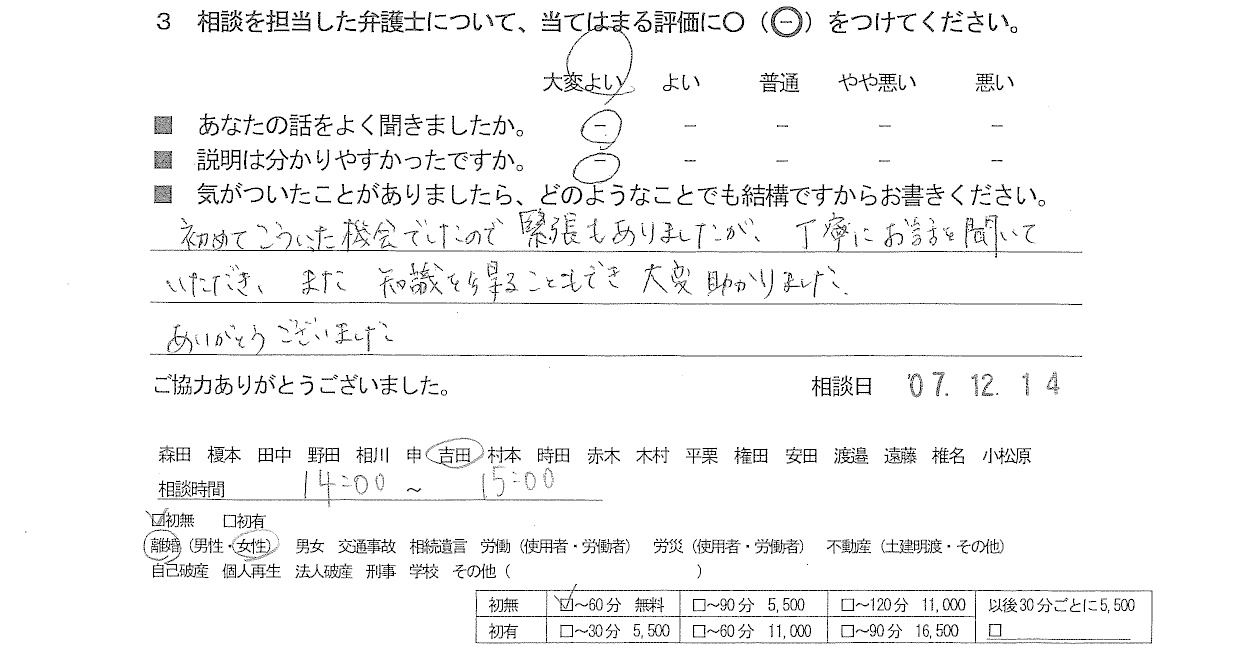 3 相談を担当した弁護士について、当てはまる評価に○（㊀）をつけてください。
大変よい よい 普通 やや悪い 悪い
■ あなたの話をよく聞きましたか。 － － － － －
■ 説明は分かりやすかったですか。 － － － － －
■ 気がついたことがありましたら、どのようなことでも結構ですからお書きください。
初めてこういった機会でしたので緊張もありましたが、丁寧にお話を聞いて
いただき、また 知識を得ることもでき 大変助かりました。
ありがとうございました
ご協力ありがとうございました。 相談日 '07. 12. 14
森田 榎本 田中 野田 相川 申 吉田 村本 時田 赤木 木村 平栗 権田 安田 渡邉 遠藤 椎名 小松原
相談時間 14:00 ～ 15:00
☑初無 □初有
離婚（男性・女性） 男女 交通事故 相続遺言 労働（使用者・労働者） 労災（使用者・労働者） 不動産（土建明渡・その他）
自己破産 個人再生 法人破産 刑事 学校 その他（ ）
初無 ☑～60分 無料 □～90分 5,500 □～120分 11,000 以後30分ごとに5,500
初有 □～30分 5,500 □～60分 11,000 □～90分 16,500 □